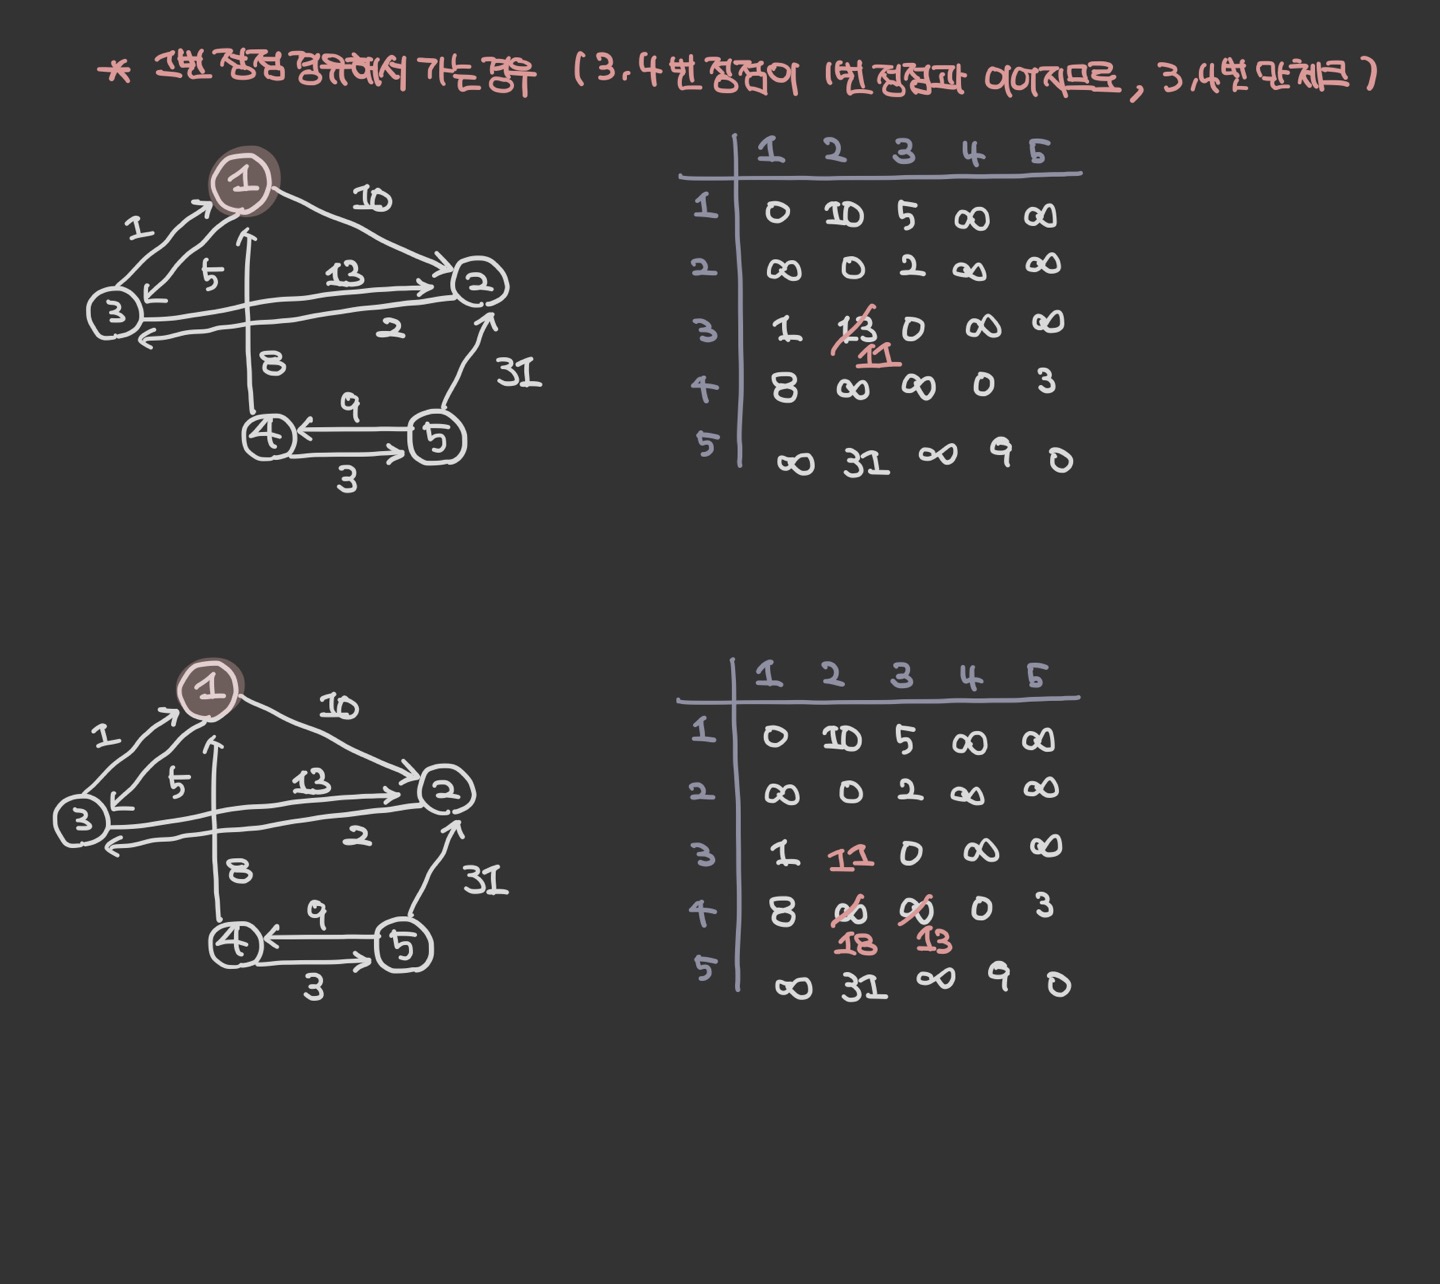 * 1번 정점 경유해서 가는 경우 (3.4번 정점이 1번 정점과 이어지므로, 3.4번만 체크)
1
10
1
5
13
2
3
2
8
31
9
4
5
3
1 2 3 4 5
1 0 10 5 ∞ ∞
2 ∞ 0 2 ∞ ∞
3 1 13 0 ∞ ∞
11
4 8 ∞ ∞ 0 3
5 ∞ 31 ∞ 9 0
1
10
1
5
13
2
3
2
8
31
9
4
5
3
1 2 3 4 5
1 0 10 5 ∞ ∞
2 ∞ 0 2 ∞ ∞
3 1 11 0 ∞ ∞
4 8 ∞ ∞ 0 3
18 13
5 ∞ 31 ∞ 9 0